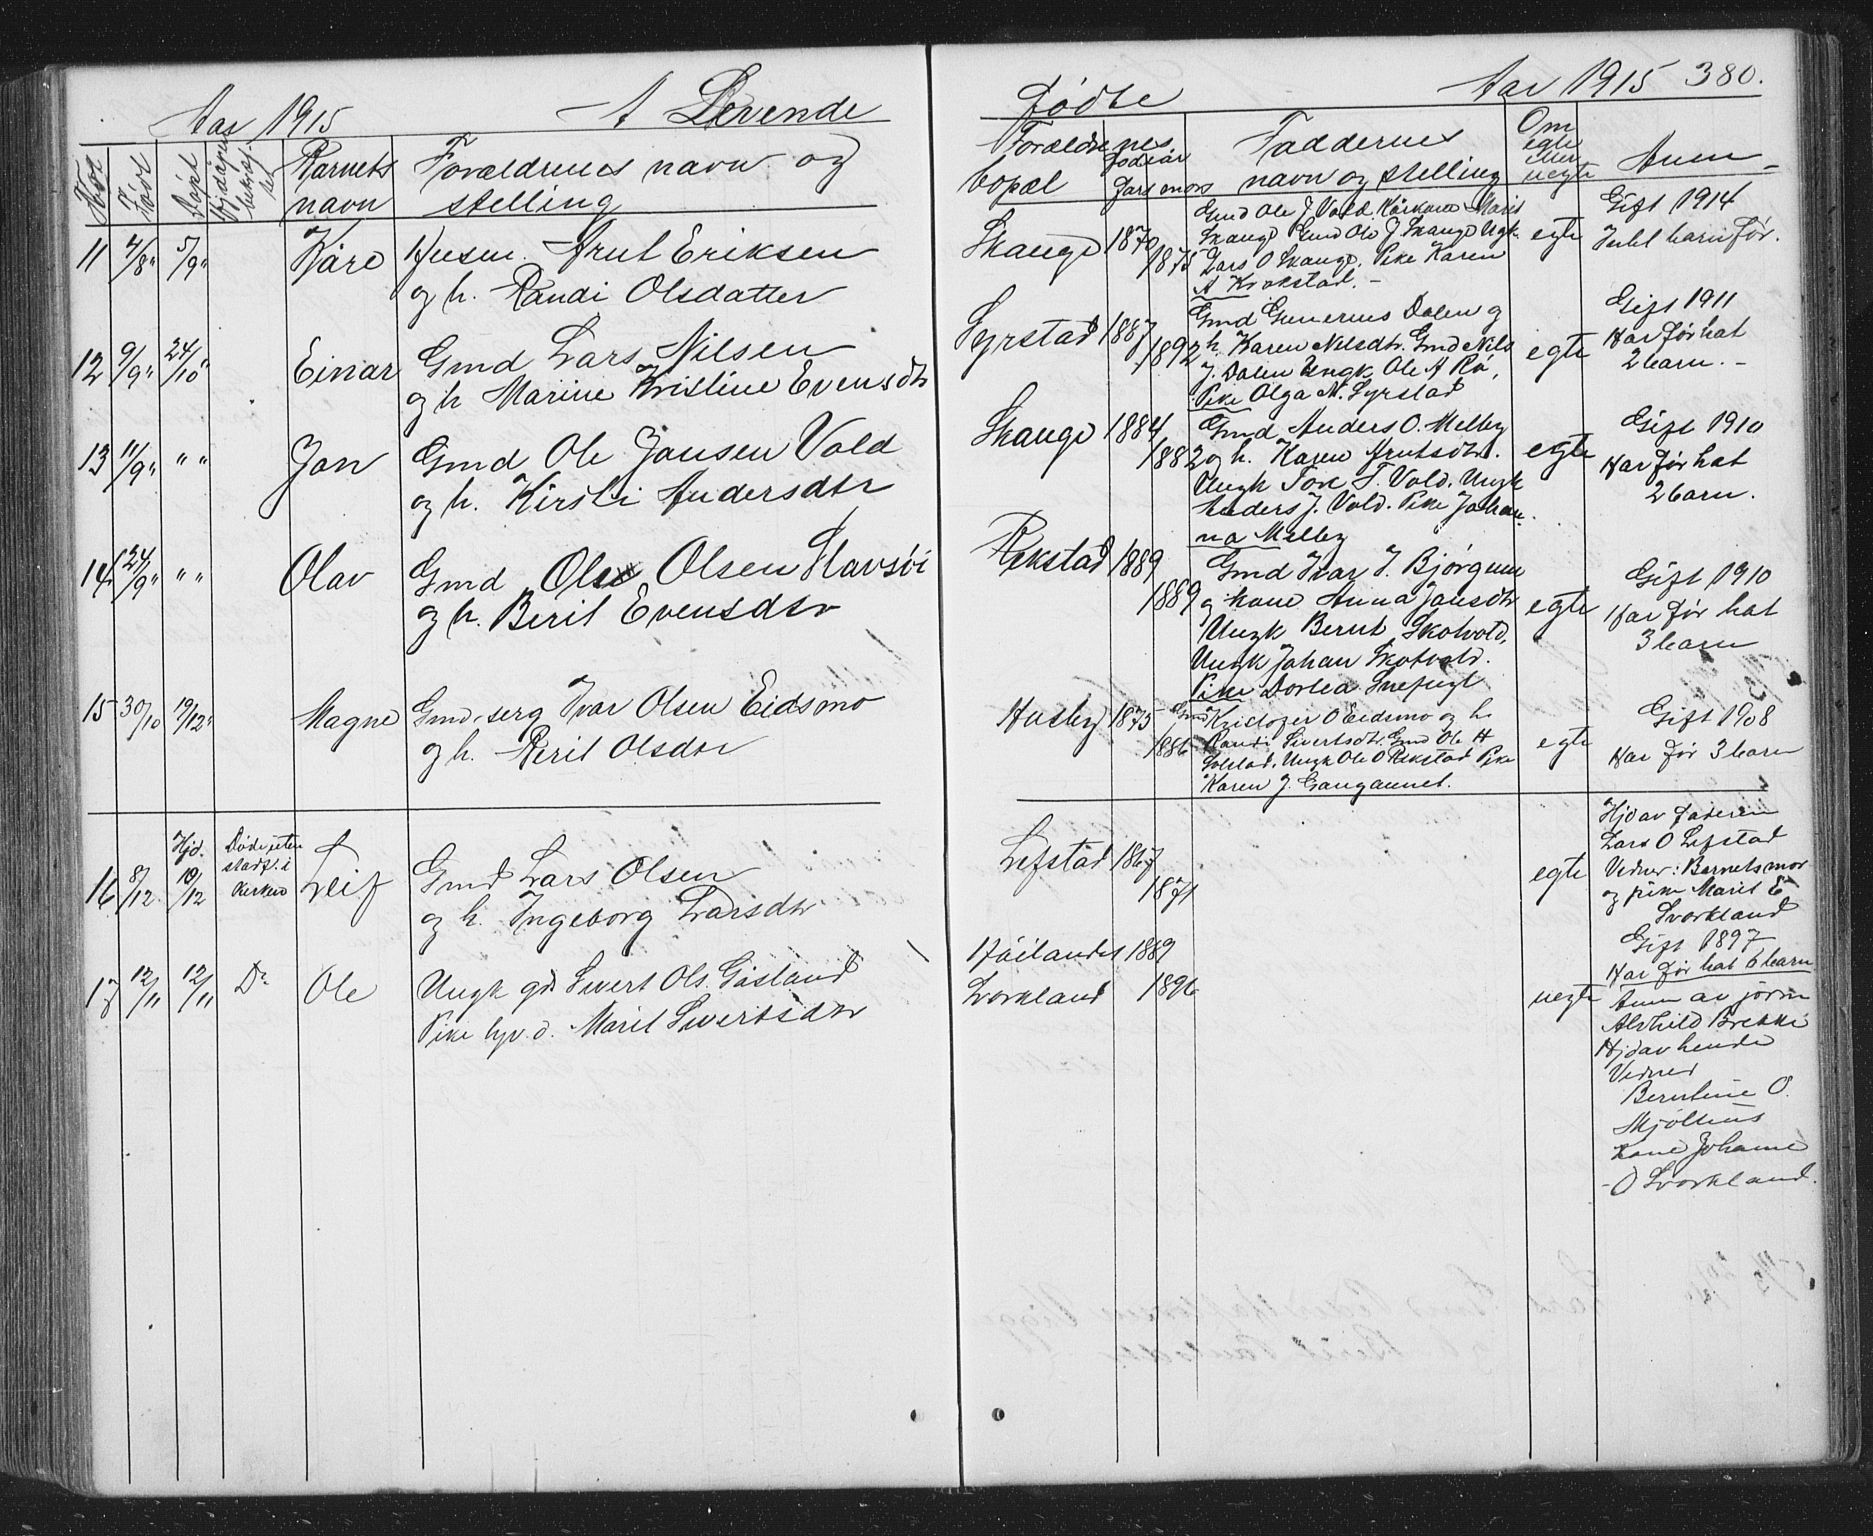 Aar 1915 A Levende
Fødte Aar 1915 380.
Født Døpt
Barnets navn
Forældrenes navn og stelling
Forældrenes bopæl
Fødeaar
Fars mors
Faddernes navn og stelling
Om egte eller uegte
Anm
11 4/8" 5/9" Kåre Husm. Arnt Eriksen
og h. Randi Olsdatter
Skauge 1870
1875
Gmd Ole J. Vold. Marit
Skauge Ole J Skauge Ugk.
Lars O Skauge. Pike Karen
A Krokstad. -
egte
Gift 1914
Intet barn før.
12 9/9" 24/10" Einar Gmd Lars Nilsen
og h Marine Kristine Evensdtr
Syrstad 1887
1892
Gmd Gunerius Dalen og
h. Karen Nilsdtr. Gmd Nils
J. Dalen Ungk Ole A Rø,
Pike Olga N. Syrstad
egte
Gift 1911
Har før hat
2 barn. -
13 11/9" " " Jon Gmd Ole Jonsen Vold
og h. Kirsti Andersdtr
Skauge 1884
1882
Gmd Anders O. Melby
og h. Karen Arntsdtr.
Ungk Tore T. Vold. Ungk
Anders J. Vold. Pike Johan-
na Melby
egte
Gift 1910
Har før hat
2 barn.
14 24/9" " " Olav Gmd Ole Olsen Stavsøi
og h. Berit Evensdtr
Rekstad 1889
1889
Gmd Ivar J. Bjørgum
og kone Anna Jonsdtr
Ungk Bernt Skotvold,
Ungk Johan Skotvold.
Pike Dortea Snefugl
egte
Gift 1910
Har før hat
3 barn
15 30/10 19/12" Magne Gmd. serg Ivar Olsen Eidsmo
og h. Beril Olsdtr
Husby 1875
1886
Gmd Kristofer O Eidsmo og h.
Randi Sivertsdtr. Gmd Ole H
Solstad. Ungk Ole O Rekstad Pike
Karen J. Gangaunet.
egte
Gift 1908
Har før 3 barn
16 8/12 Hjd. 10/12 Døde uten stadf. i Kirken Leif Gmd Lars Olsen
og h. Ingeborg Larsdtr
Lefstad 1867
1871
egte
Hjd av faderen
Lars O Lefstad
Vidner: Barnets mor
og pike Marit E
Svorkland
Gift 1897
Har før hat 6 barn
17 12/11 12/11 Do Ole Ungk gds Sivert Ols. Gåsland
Pike hjv. d. Marit Sivertsdtr
Høilandet 1889
Svorkland 1896
uegte
Anm av jorm
Alvhild Brekke
Hjd av hende
Vidner
Berntine O.
Mjøltens
kone Johanne
O Svorkland.